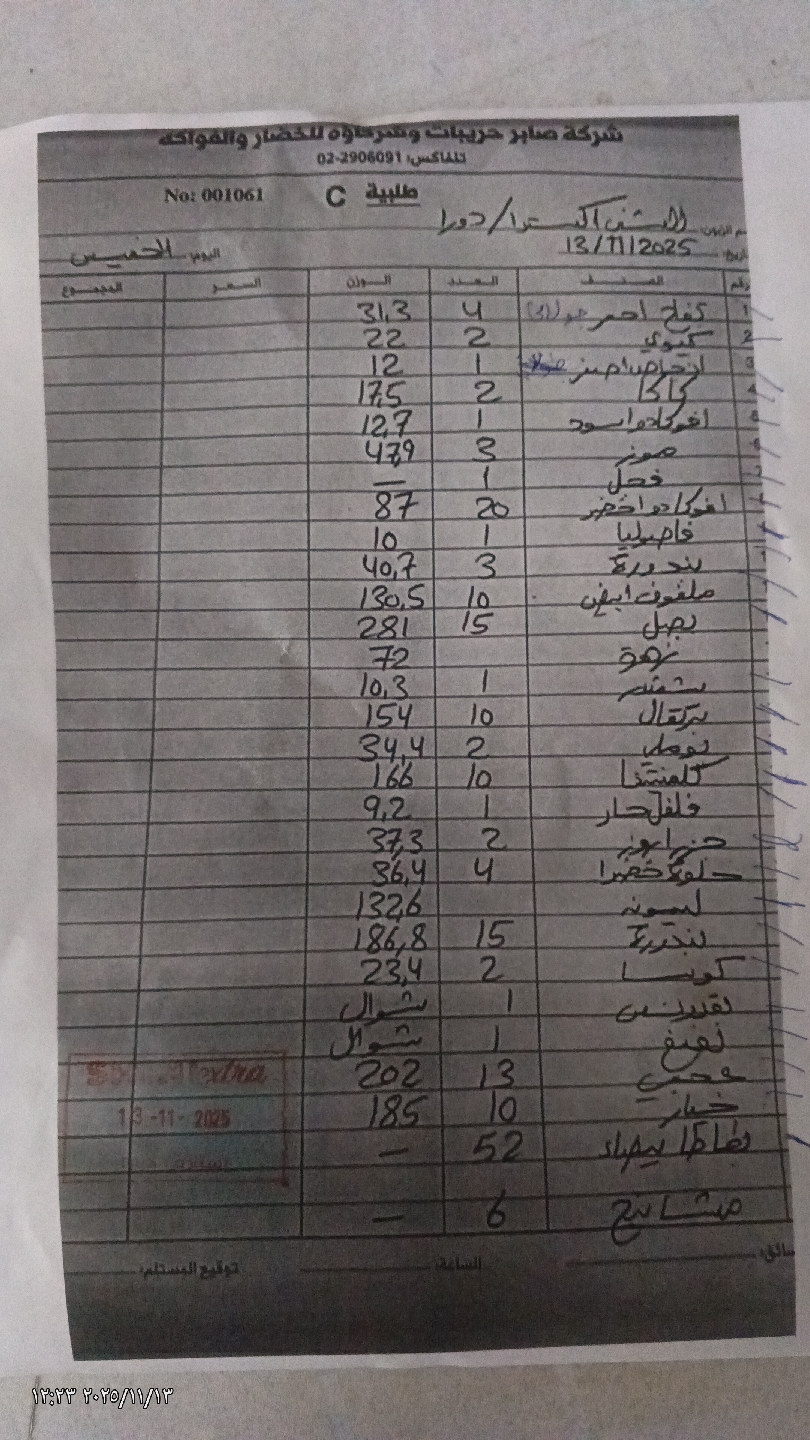 شركة صابر حريبات وشركاؤه للخضار والفواكه
تلفاكس: 02-2906091
No: 001061 C طلبية
اكسترا / دورا
13/11/2025
اليوم: الخميس
رقم الصنف العدد الوزن السعر المجموع
1 تفاح احمر 4 31,3
2 كيوي 2 22
3 1 12
4 كاكا 2 17,5
5 افوكادو اسود 1 12,7
6 موز 3 47,9
7 فجل 1 —
افوكادو اخضر 20 87
فاصوليا 1 10
بندورة 3 40,7
ملفوف ابيض 10 130,5
بصل 15 281
زهرة 72
شمندر 1 10,3
برتقال 10 154
بوملي 2 34,4
كلمنتينا 10 166
فلفل حار 1 9,2
2 37,3
حلوة خضرا 4 36,4
ليمون 132,6
بندورة 15 186,8
كوسا 2 23,4
بقدونس 1 شوال
نعنع 1 شوال
عجمي 13 202
خيار 10 185
بطاطا بيضاء 52 —
مشاتيح 6 —
13-11-2025
سائق: الساعة: توقيع المستلم:
٢٠٢٥/١١/١٣ ١٢:٢٣